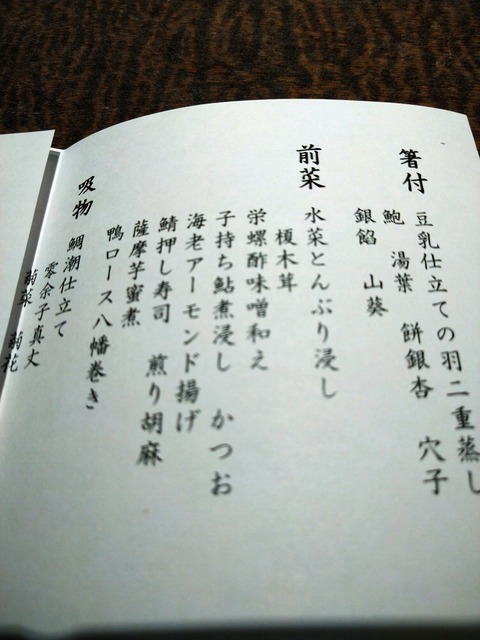 箸付
豆乳仕立ての羽二重蒸し
鮑　湯葉　餅銀杏　穴子
銀餡　山葵
前菜
水菜とんぶり浸し
榎木茸
栄螺酢味噌和え
子持ち鮎煮浸し　かつお
海老アーモンド揚げ
鯖押し寿司　煎り胡麻
薩摩芋蜜煮
鴨ロース八幡巻き
吸物
鯛潮仕立て
零余子真丈
菊菜　菊花